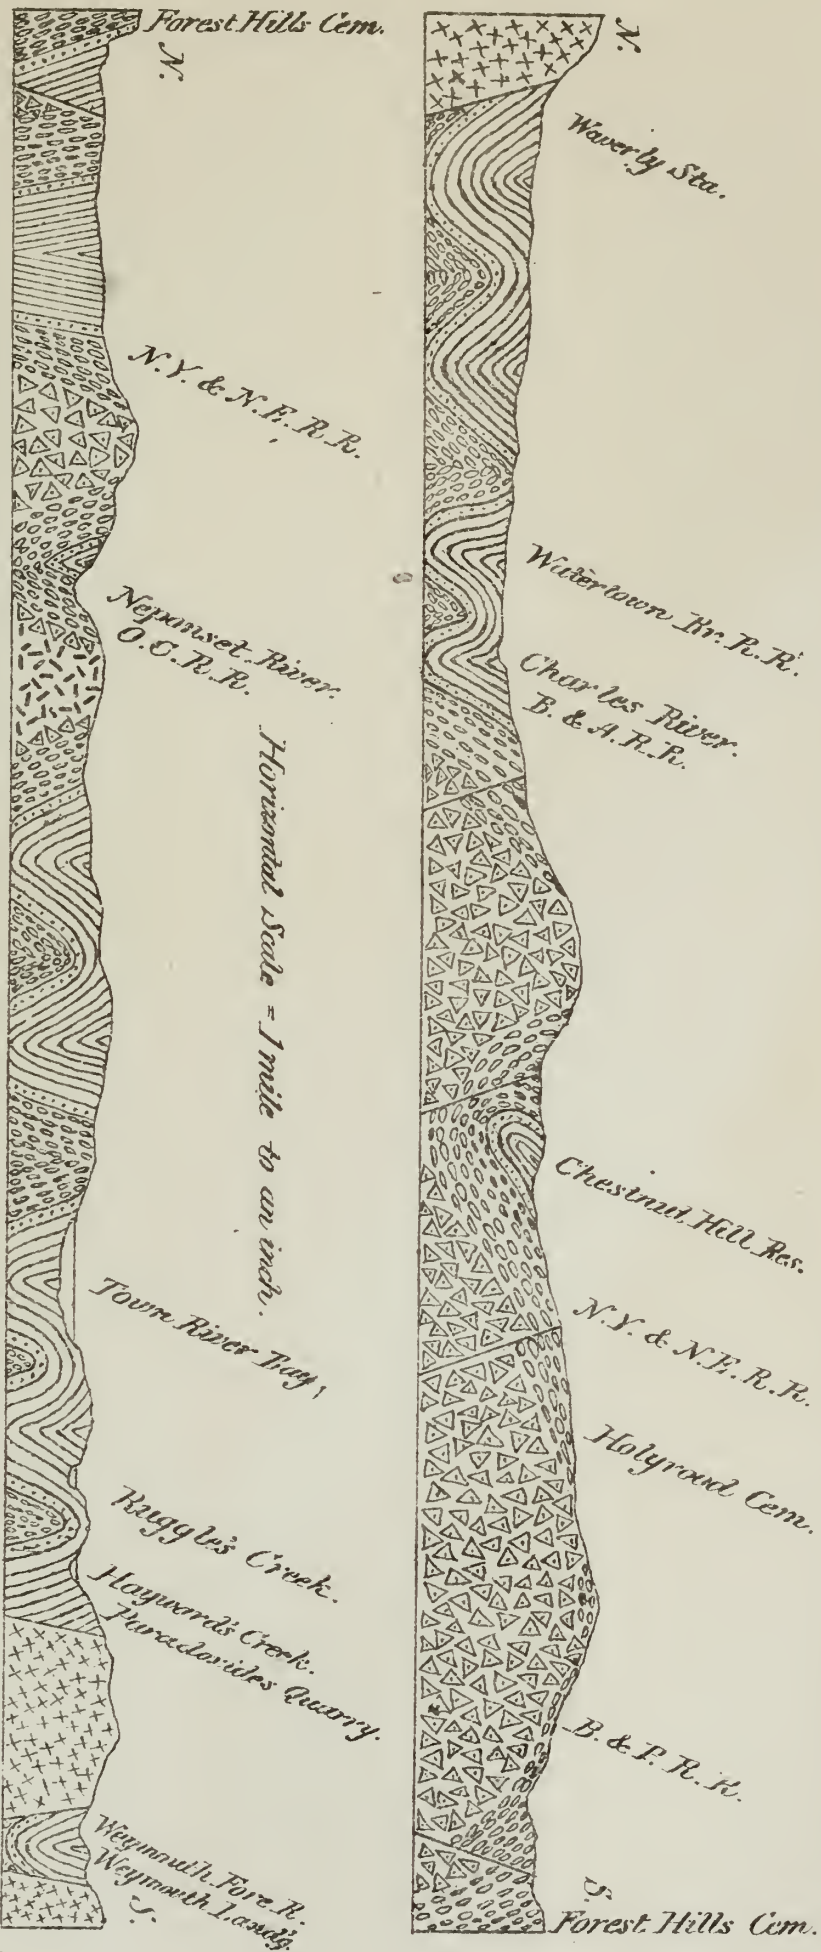 Forest Hills Cem.
N.
N.Y. & N.E.R.R.
Neponset River.
O.C.R.R.
Horizontal Scale = 1 mile to an inch.
Town River Bay,
Ruggles Creek.
Hayward's Creek.
Paradoxides Quarry.
Weymouth Fore R.
Weymouth Land'g.
S.
N.
Waverly Sta.
Watertown Br. R.R.
Charles River.
B. & A.R.R.
Chestnut Hill Res.
N.Y. & N.E.R.R.
Holyrood Cem.
B. & P.R.R.
S.
Forest Hills Cem.